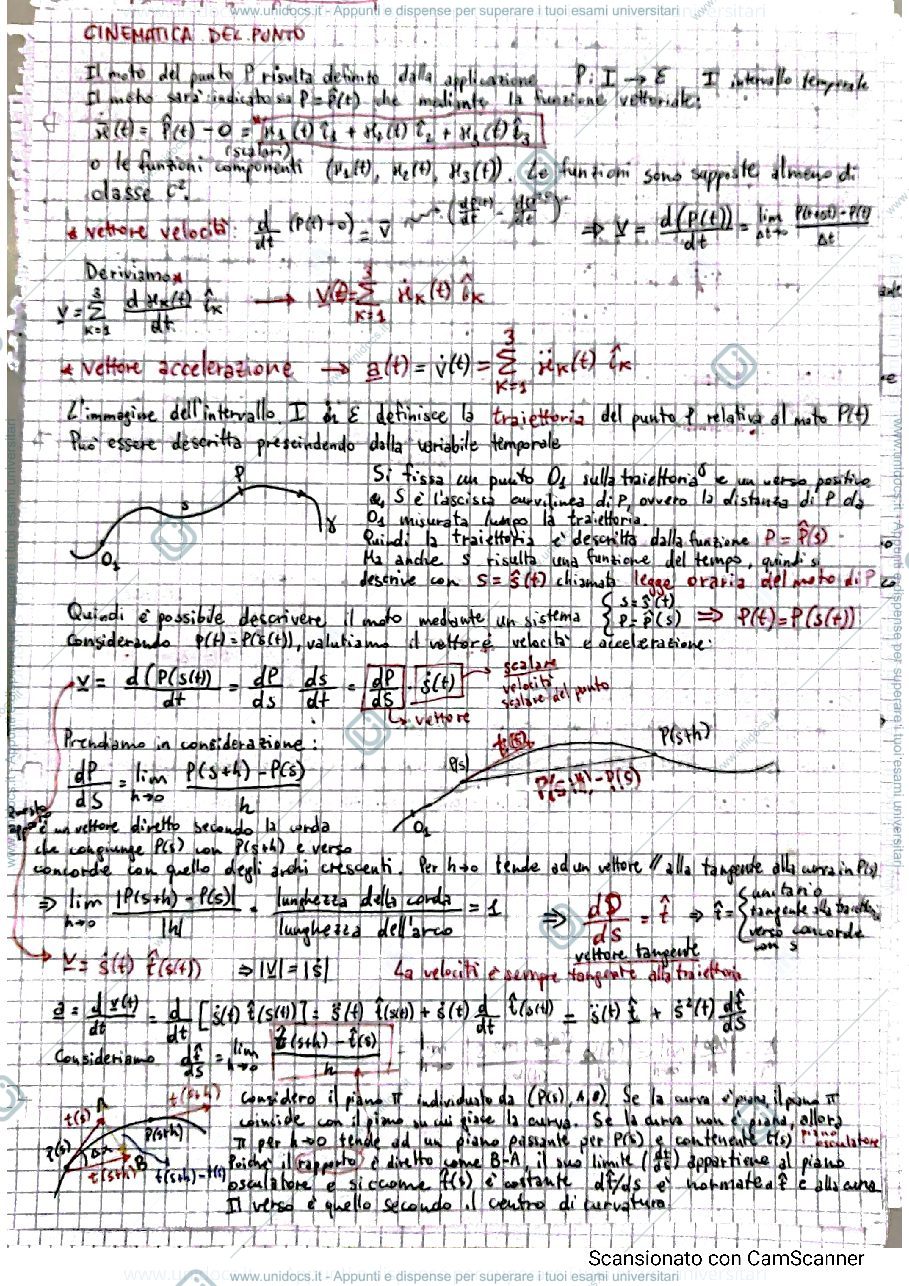 www.unidocs.it - Appunti e dispense per superare i tuoi esami universitari
CINEMATICA DEL PUNTO
Il moto del punto P risulta definito dalla applicazione P: I → ℰ I intervallo temporale
Il moto sarà indicato sia P = P̂(t) che mediante la funzione vettoriale:
(t) = P̂(t) - O = x₁(t) î₁ + x₂(t) î₂ + x₃(t) î₃
(scalari)
o le funzioni componenti (x₁(t), x₂(t), x₃(t)). Le funzioni sono supposte almeno di
classe C².
* vettore velocità: d/dt (P(t)-O) = v ⇒ v = d(P(t))/dt = lim Δt→0 P(t+Δt)-P(t)/Δt
Deriviamo *
v = Σ K=1 3 d xₖ(t)/dt îₖ → v(t) = Σ K=1 3 ẋₖ(t) îₖ
* vettore accelerazione → a(t) = v̇(t) = Σ K=1 3 ẍₖ(t) îₖ
L'immagine dell'intervallo I in ℰ definisce la traiettoria del punto P relativa al moto P(t)
Può essere descritta prescindendo dalla variabile temporale
O₁ s P γ
Si fissa un punto O₁ sulla traiettoria γ e un verso positivo
S è l'ascissa curvilinea di P, ovvero la distanza di P da
O₁ misurata lungo la traiettoria.
Quindi la traiettoria è descritta dalla funzione P = P̂(s)
Ma anche s risulta una funzione del tempo, quindi si
descrive con s = ŝ(t) chiamata legge oraria del moto di P
Quindi è possibile descrivere il moto mediante un sistema { s = ŝ(t) P = P̂(s) ⇒ P(t) = P(s(t))
Considerando P(t) = P(s(t)), valutiamo il vettore velocità e accelerazione:
v = d(P(s(t)))/dt = dP/ds ds/dt = dP/ds · ṡ(t) → scalare
velocità
scalare del punto
↳ vettore
Prendiamo in considerazione:
dP/ds = lim h→0 P(s+h) - P(s)/h
O₁ P(s) t(s) P(s+h) P(s+h) - P(s)
Questo
è un vettore diretto secondo la corda
che congiunge P(s) con P(s+h) e verso
concorde con quello degli archi crescenti. Per h→0 tende ad un vettore // alla tangente alla curva in P(s)
⇒ lim h→0 |P(s+h) - P(s)|/|h| = lunghezza della corda/lunghezza dell'arco = 1 ⇒ dP/ds = t̂ ⇒ t̂ = { unitario
tangente alla traiettoria
verso concorde
con s
vettore tangente
v = ṡ(t) t̂(s(t)) ⇒ |v| = |ṡ| La velocità è sempre tangente alla traiettoria
a = d v(t)/dt = d/dt [ṡ(t) t̂(s(t))] = s̈(t) t̂(s(t)) + ṡ(t) d/dt t̂(s(t)) = s̈(t) t̂ + ṡ²(t) dt̂/ds
Consideriamo dt̂/ds = lim h→0 t̂(s+h) - t̂(s)/h
t(s) A t(s+h) P(s) P(s+h) B t(s+h) t(s+h)-t(s)
Considero il piano π individuato da (P(s), A, B). Se la curva è piana, il piano π
coincide con il piano su cui giace la curva. Se la curva non è piana, allora
π per h→0 tende ad un piano passante per P(s) e contenente t(s) piano osculatore
Poiché il rapporto è diretto come B-A, il suo limite (dt̂/ds) appartiene al piano
osculatore e siccome t̂(s) è costante dt̂/ds è normale a t̂ e alla curva
Il verso è quello secondo il centro di curvatura
Scansionato con CamScanner
www.unidocs.it - Appunti e dispense per superare i tuoi esami universitari